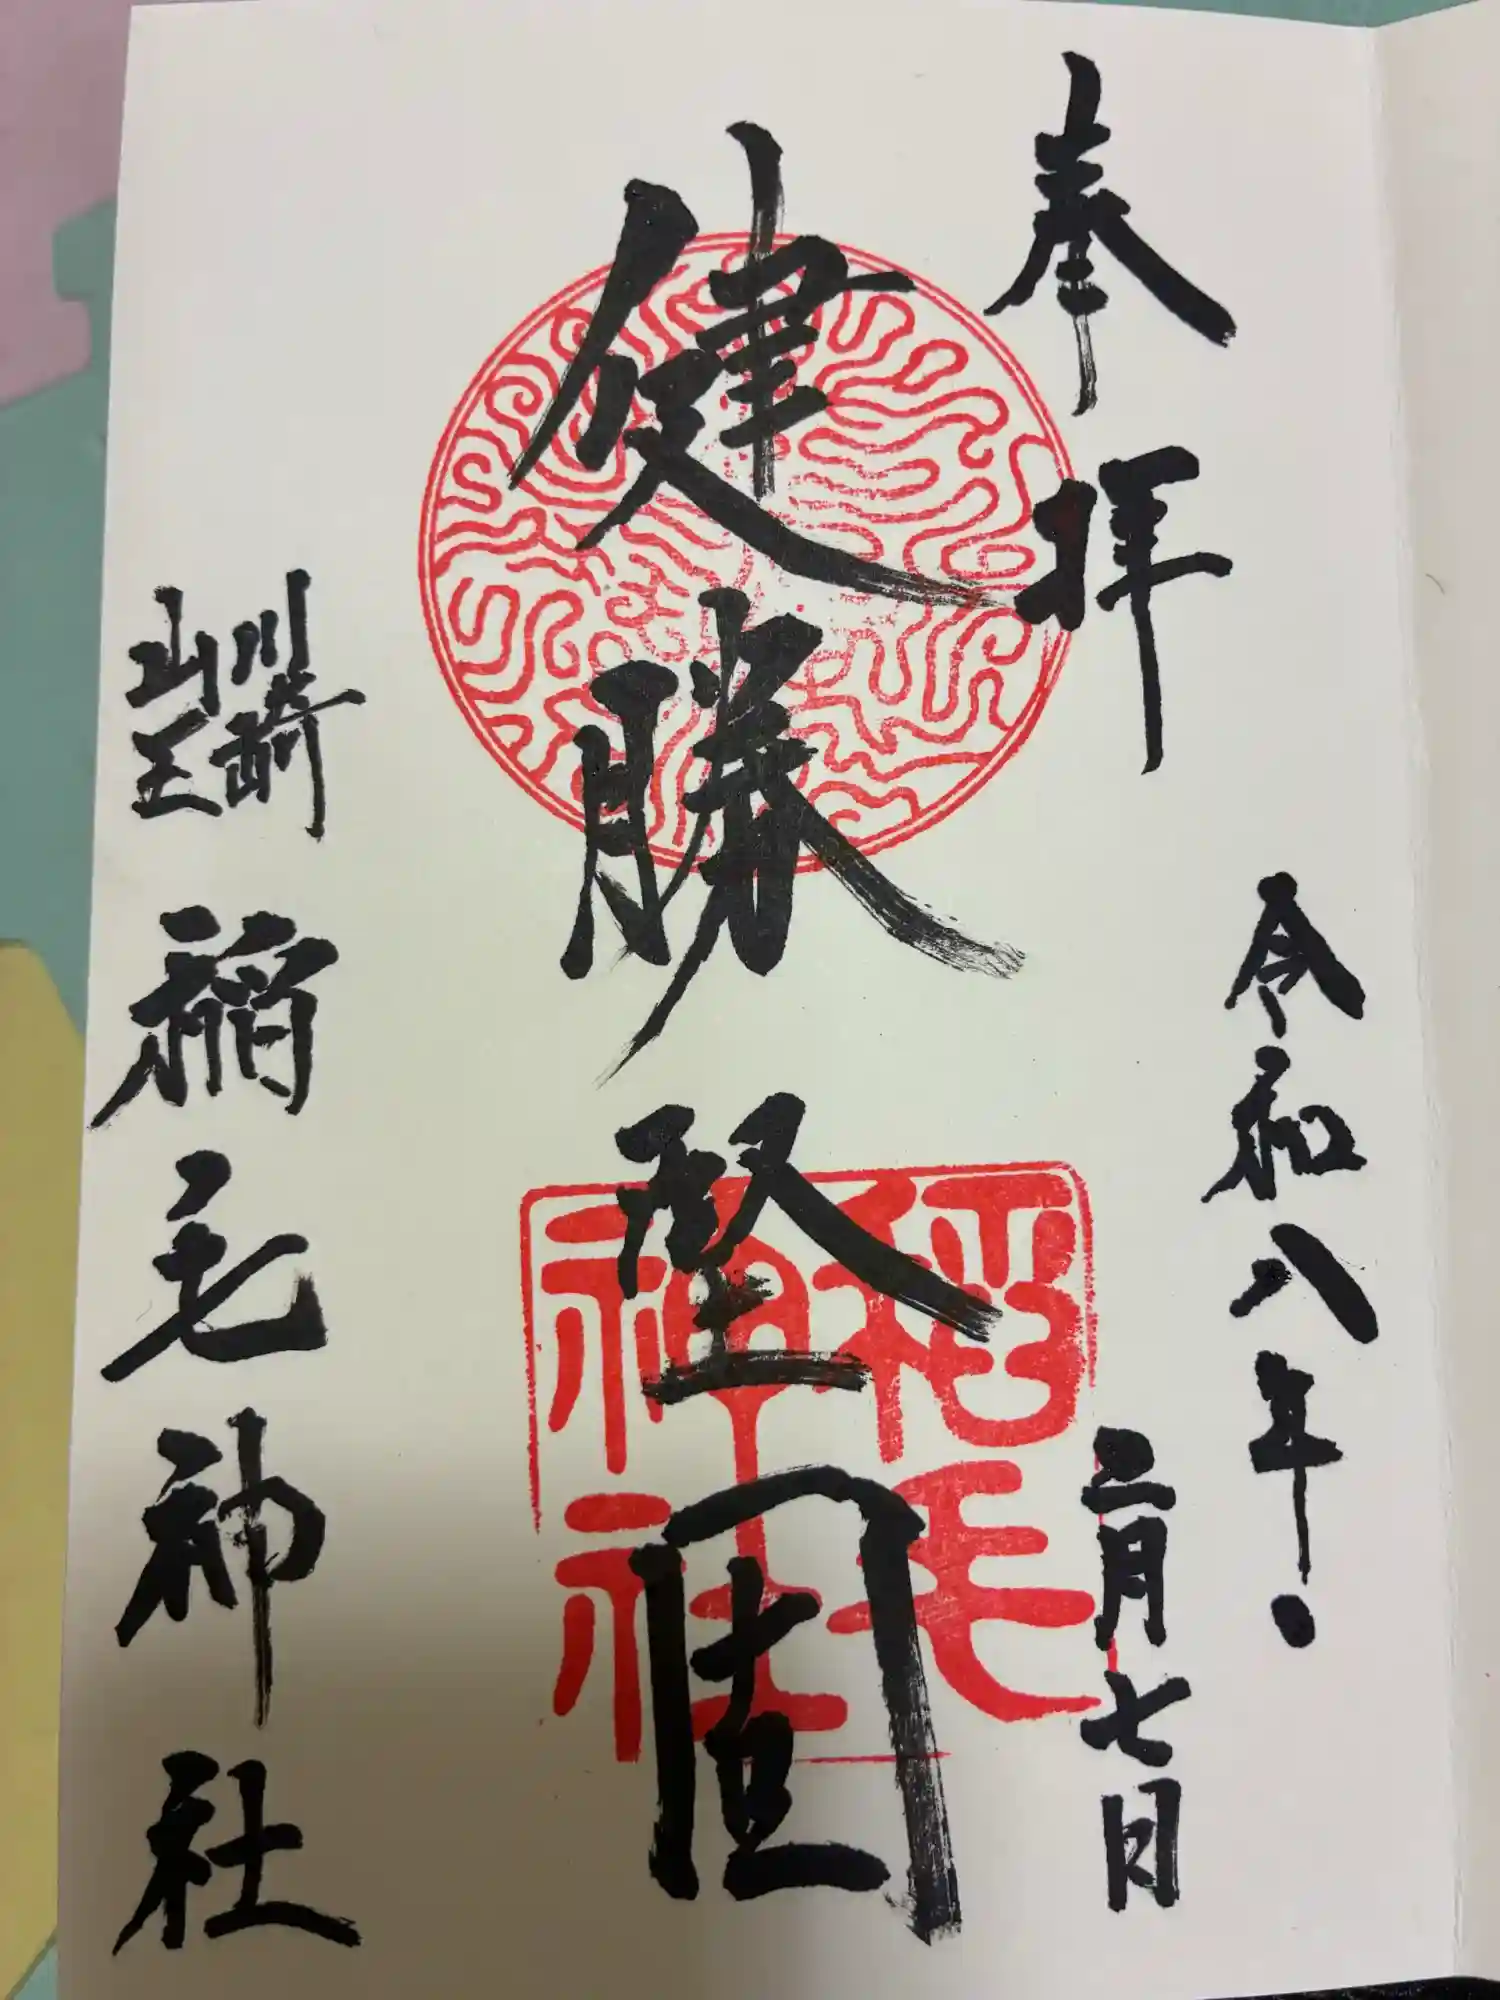 奉拝
令和八年
二月七日
健勝堅固
稲毛
神社
川崎
山王
稲毛神社